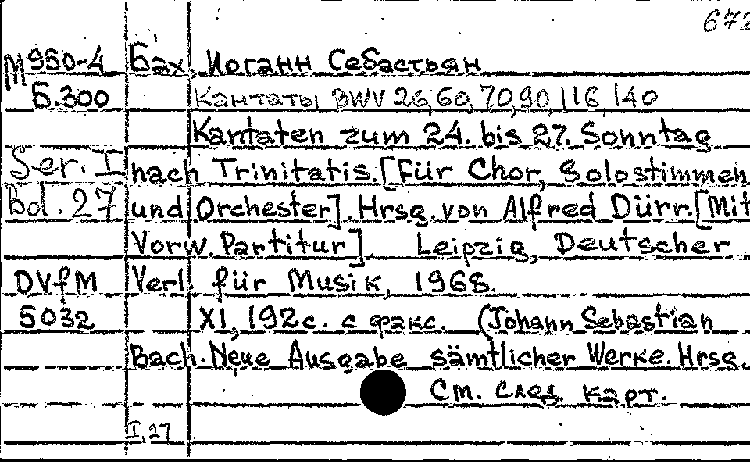 672
М 960-4 Бах, Иоганн Себастьян
Б.300 Кантаты BWV 26,60,70,90,116,140
Kantaten zum 24. bis 27. Sonntag
Ser. I nach Trinitatis. [Für Chor, Solostimmen
Bd. 27 und Orchester]. Hrsg. von Alfred Dürr. [Mit
Vorw. Partitur] Leipzig, Deutscher
DVfM Verl. für Musik, 1968.
5032 XI, 192с. с факс. (Johann Sebastian
Bach. Neue Ausgabe sämtlicher Werke. Hrsg.
См. след. карт.
I,27